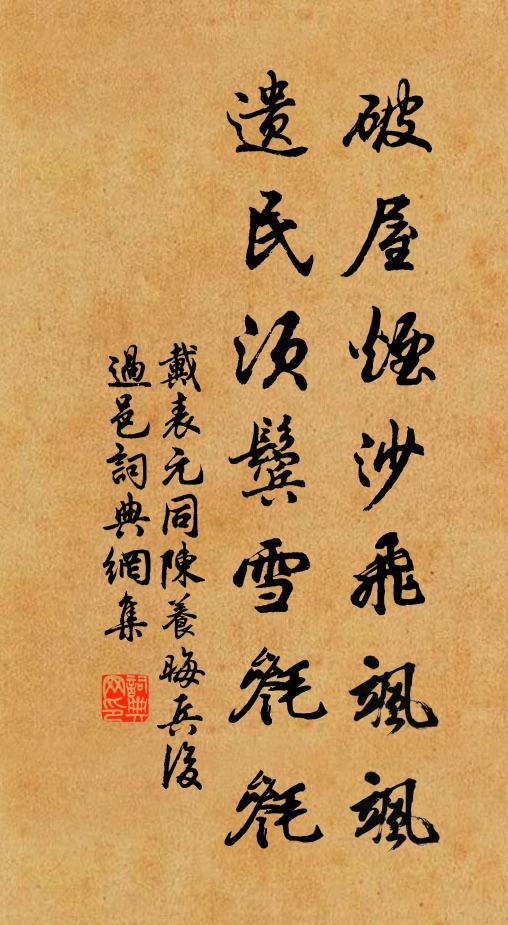 破屋煙沙飛颯颯
遺民須鬓雪毿毿
戴表元同陳養晦兵後
過邑詞典網集
詞典
网印